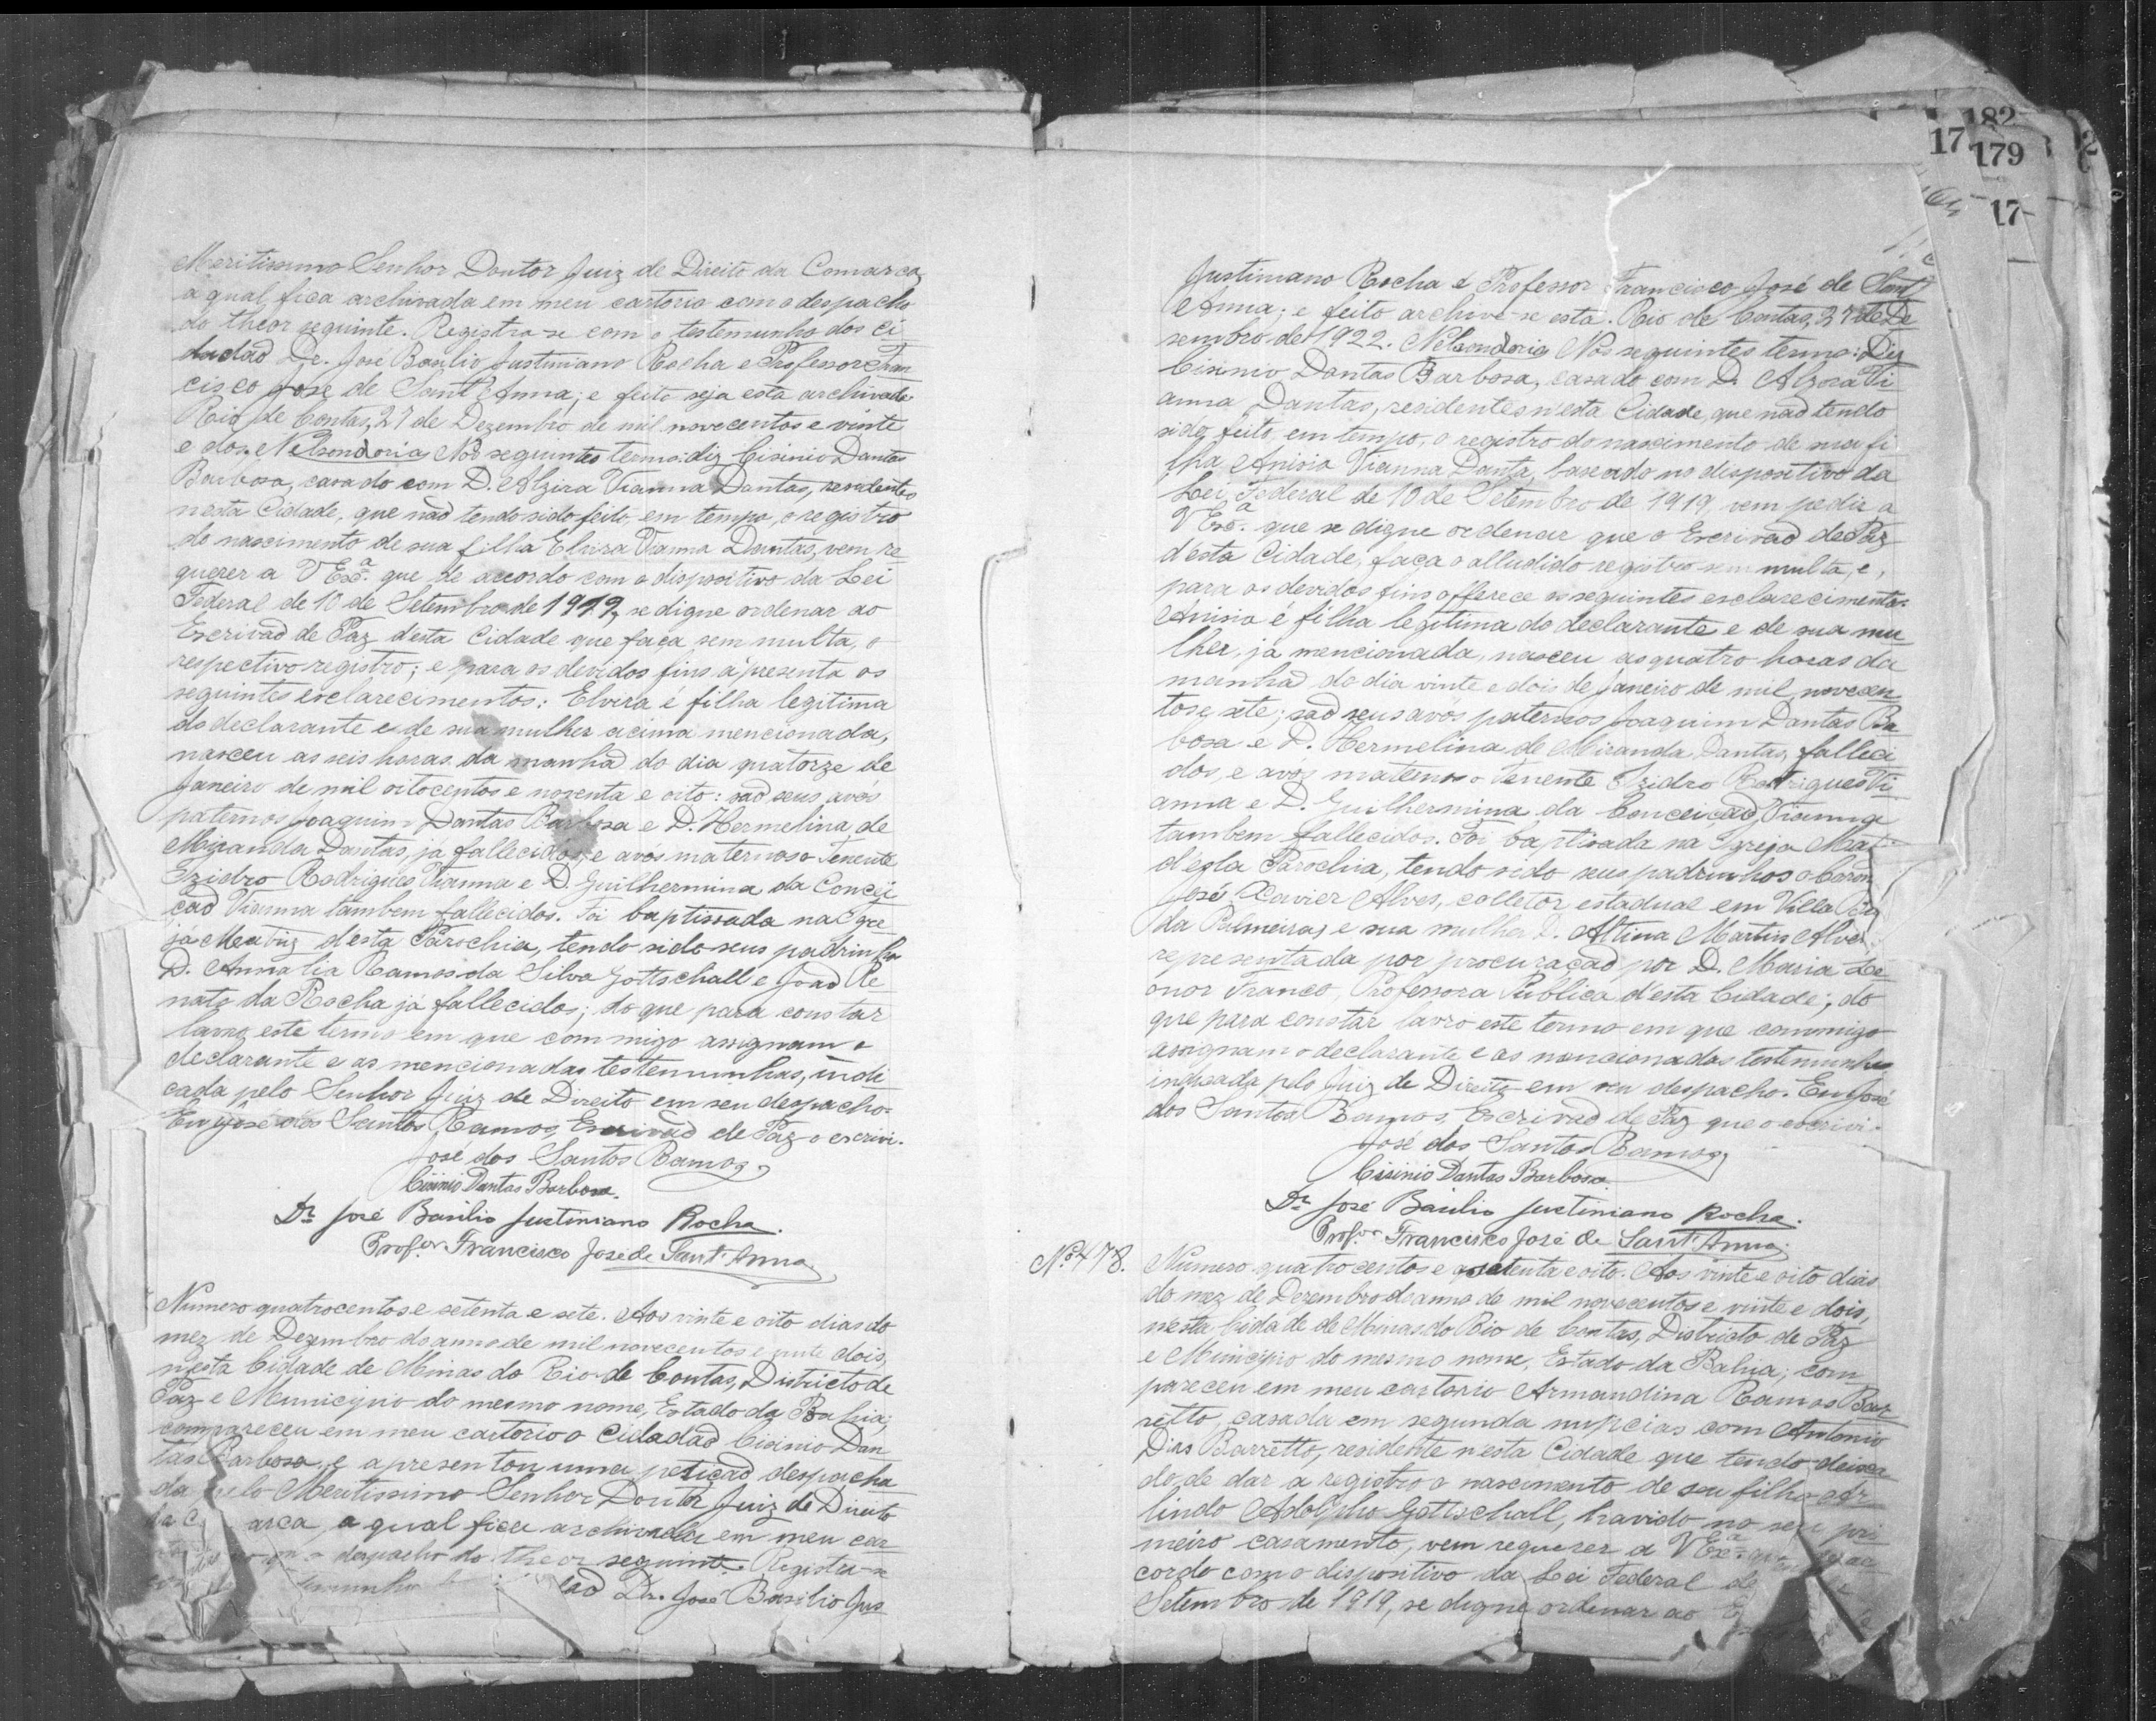 Meritissimo Senhor Doutor Juiz de Direito da Comarca,
a qual fica archivada em meu cartorio com o despacho
do theor seguinte. Registra-se com o testemunho dos ci
dadão Dr. José Basilio Justiniano Rocha e Professor Fran
cisco José de Sant'Anna; e feito seja esta archivada
Rio de Contas, 27 de Dezembro de mil novecentos e vinte
e dois. Nelsondoria Nos seguintes termo: diz Cisinio Dantas
Barbosa, casado com D. Alzira Vianna Dantas, residentes
nesta Cidade, que não tendo sido feito, em tempo, o registro
do nascimento de sua filha Elvira Vianna Dantas, vem re
querer a V Exª. que de accordo com o dispositivo da Lei
Federal de 10 de Setembro de 1919, se digne ordenar ao
Escrivão de Paz d'esta Cidade que faça sem multa, o
respectivo registro; e para os devidos fins apresenta os
seguintes esclarecimentos: Elvira é filha legitima
do declarante e de sua mulher acima mencionada,
nasceu as seis horas da manhã do dia quatorze de
Janeiro de mil oitocentos e noventa e oito: são seus avós
paternos Joaquim Dantas Barbosa e D. Hermelina de
Miranda Dantas, já fallecidos, e avós maternos o Tenente
Izidro Rodrigues Vianna e D. Guilhermina da Concei
ção Vianna tambem fallecidos. Foi baptissada na Igre
ja Matriz d'esta Parochia, tendo sido seus padrinhos
D. Annalia Ramos da Silva Gottschall e João Re
nato da Rocha já fallecidos; do que para constar
lavro este termo em que commigo assignam o
declarante e as mencionadas testemunhas, indi
cada pelo Senhor Juiz de Direito em seu despacho.
Eu José dos Santos Ramos, Escrivão de Paz o escrivi.
José dos Santos Ramos
Cisinio Dantas Barbosa.
Dr José Basilio Justiniano Rocha.
Prof.or Francisco José de Sant'Anna
Numero quatrocentos e setenta e sete. Aos vinte e oito dias do
mez de Dezembro do anno de mil novecentos e vinte dois,
n'esta Cidade de Minas do Rio de Contas, Districto de
Paz e Municipio do mesmo nome, Estado da Bahia,
compareceu em meu cartorio o Cidadão Cisinio Dan
tas Barbosa, e apresentou uma petição despacha
da pelo Meritissimo Senhor Doutor Juiz de Direito
da C arca, a qual fica archivada em meu car
despacho do theor seguinte. Registra-se
dão Dr. José Basilio Jus
182
17 179
17
Justiniano Rocha e Professor Francisco José de Sant'
Anna; e feito archive-se esta. Rio de Contas, 27 de De
sembro de 1922. Nelsondoria Nos seguintes termo: Diz
Cisinio Dantas Barbosa, casado com D. Alzira Vi
anna Dantas, residentes n'esta Cidade, que não tendo
sido feito, em tempo, o registro do nascimento de sua fi
lha Anisia Vianna Danta, baseado no dispositivo da
Lei Federal de 10 de Setembro de 1919, vem pedir a
V Exª. que se digne ordenar que o Escrivão de Paz
d'esta Cidade, faça o alludido registro sem multa, e,
para os devidos fins offerece os seguintes esclarecimentos.
Anisia é filha legitima do declarante e de sua mu
lher, já mencionada, nasceu as quatro horas da
manhã do dia vinte e dois de Janeiro de mil novecen
tos e sete; são seus avós paternos Joaquim Dantas Ba
bosa e D. Hermelina de Miranda Dantas, falleci
dos, e avós maternos o Tenente Izidro Rodrigues Vi
anna e D. Guilhermina da Conceição Vianna
tambem fallecidos. Foi baptisada na Igreja Mat
d'esta Parochia, tendo sido seus padrinhos o Coron
José Xavier Alves, colletor estadual em Villa
da Palmeiras e sua mulher D. Altina Martins Alves
representada por procuração por D. Maria Le
onor Franco, Professora Publica d'esta Cidade; do
que para constar lavro este termo em que commigo
assignam o declarante e as mencionadas testemunhas
indicada pelo Juiz de Direito em seu despacho. Eu José
dos Santos Ramos, Escrivão de Paz que o escrivi.
José dos Santos Ramos
Cisinio Dantas Barbosa.
Dr José Basilio Justiniano Rocha.
Prof.or Francisco José de Sant'Anna
Nº 478. Numero quatrocentos e setenta e oito. Aos vinte e oito dias
do mez de Dezembro do anno de mil novecentos e vinte e dois,
nesta Cidade de Minas do Rio de Contas, Districto de Paz
e Municipio do mesmo nome, Estado da Bahia; com
pareceu em meu cartorio Armandina Ramos Bar
retto, casada em segunda nupcias com Antonio
Dias Barretto, residente n'esta Cidade que tendo deixa
do de dar a registro o nascimento de seu filho Ar
lindo Adolpho Gottschall, havido no seu pri
meiro casamento, vem requerer a V Exª. que de ac
cordo com o dispositivo da Lei Federal de
Setembro de 1919, se digne ordenar ao